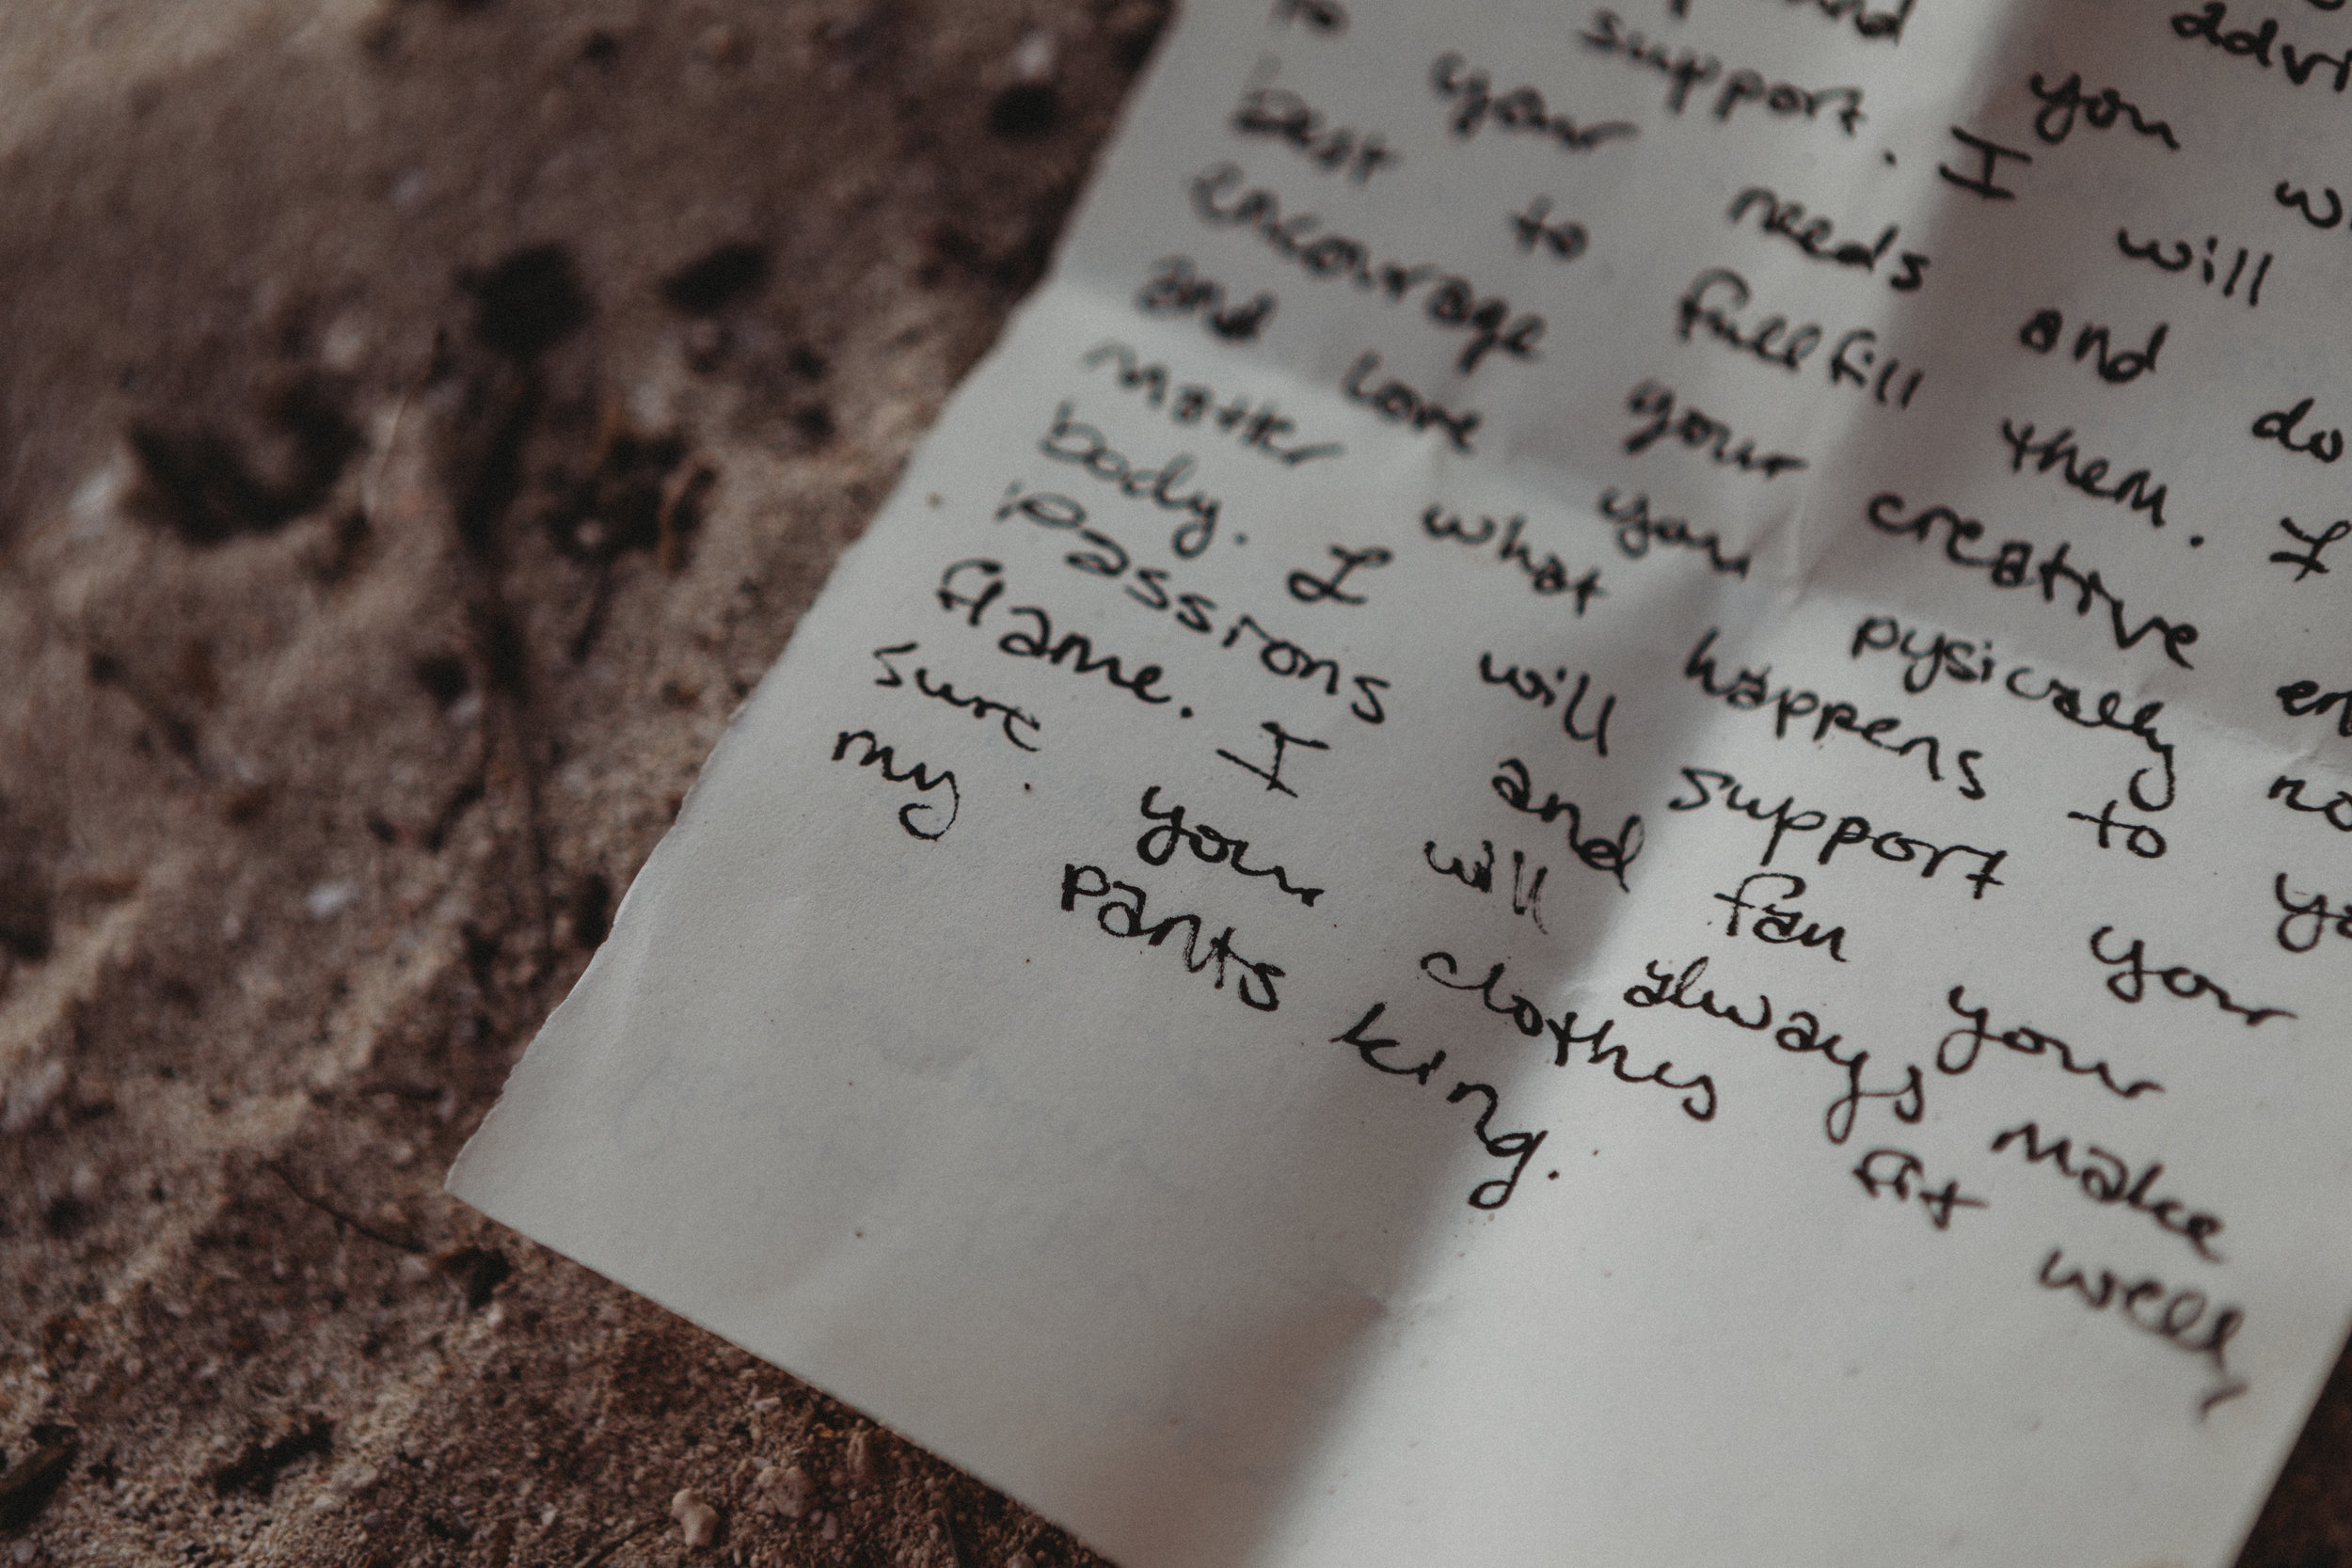 advi
and you
support. I will
to your needs and do
best to fullfill them. I
encourage your creative en
and love you pysically no
matter what happens to yo
body. I will support your
passions and fan your
flame. I will always make
sure your clothes fit well,
my pants king.